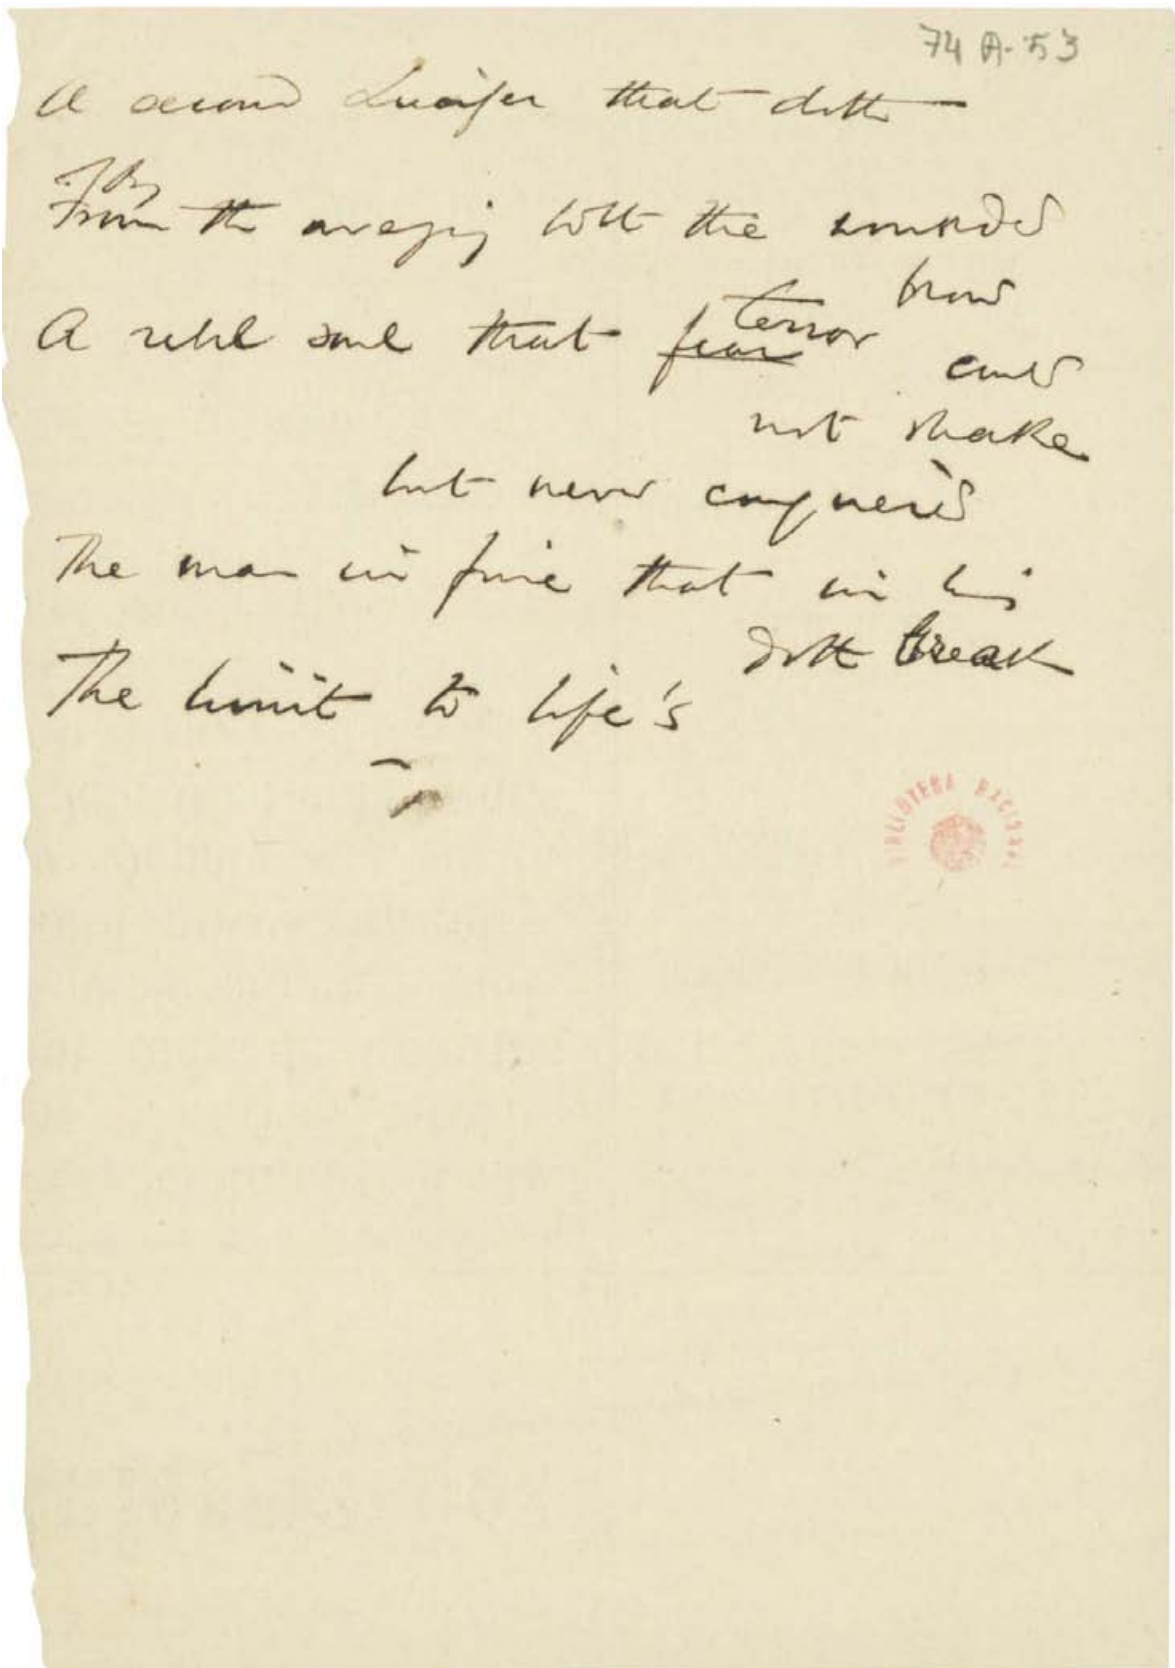 74 A-53
A second Lucifer that doth —
by
From the avenging bolt the wounded
brow
A rebel soul that fear terror could
not shake
but never conquer'd
The man in fine that in his
doth break
The limit to life's
BIBLIOTECA NACIONAL